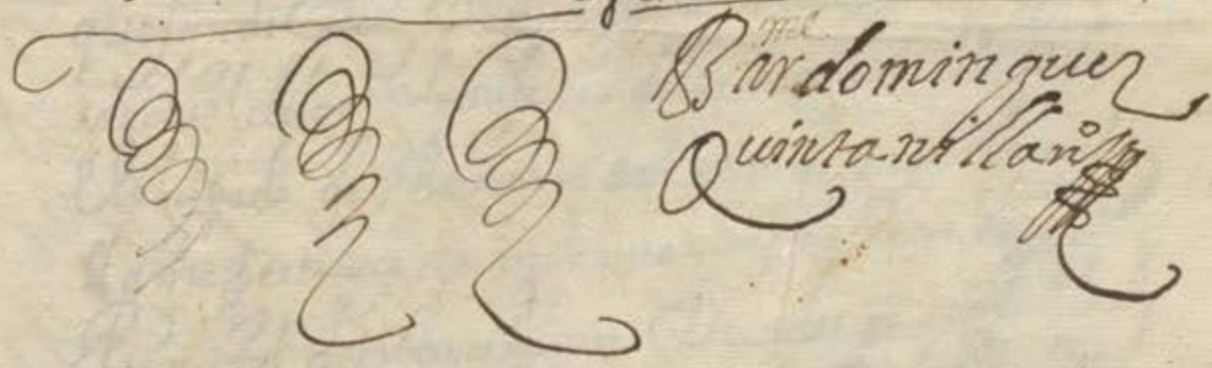 Bar^me dominguez
Quintanilla n^o